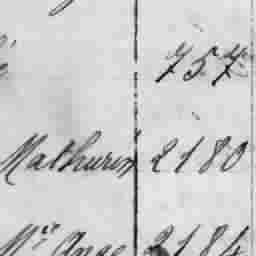 757
Mathurin 2180
Mlle Ange 2184